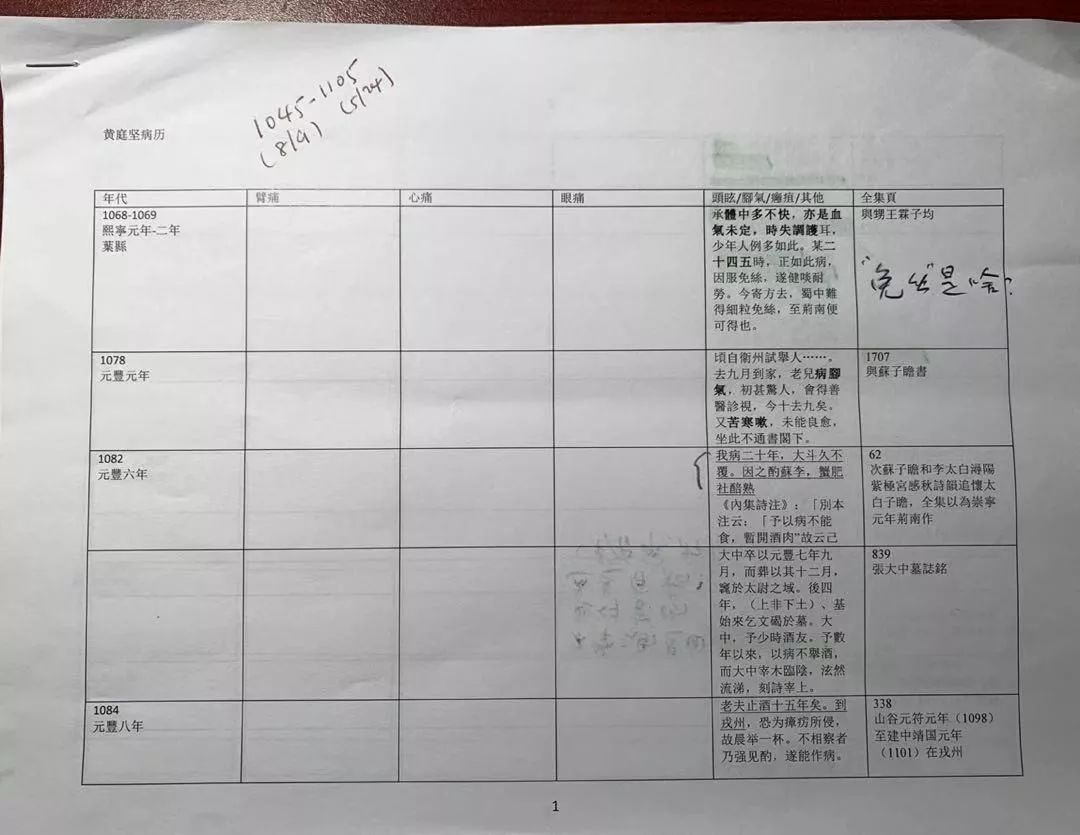 1045-1105
(8/9) (5/24)
黄庭坚病历
年代 臂痛 心痛 眼痛 頭眩/腳氣/癰疽/其他 全集頁
1068-1069
熙寧元年-二年
葉縣
承體中多不快，亦是血
氣未定，時失調護耳，
少年人例多如此。某二
十四五時，正如此病，
因服免絲，遂健啖耐
勞。今寄方去，蜀中難
得細粒免絲，至荊南便
可得也。
與甥王霖子均
"免丝"是啥？
1078
元豐元年
頃自衛州試舉人……。
去九月到家，老兒病腳
氣，初甚驚人，會得善
醫診視，今十去九矣。
又苦寒嗽，未能良愈，
坐此不通書閣下。
1707
與蘇子瞻書
1082
元豐六年
我病二十年，大斗久不
覆。因之酌蘇李，蟹肥
社醅熟
《內集詩注》：「別本
注云：「予以病不能
食，暫開酒肉"故云己
62
次蘇子瞻和李太白潯陽
紫極宮感秋詩韻追懷太
白子瞻，全集以為崇寧
元年荊南作
大中卒以元豐七年九
月，而葬以其十二月，
窆於太尉之域。後四
年，（上非下土）、基
始來乞文碣於墓。大
中，予少時酒友。予數
年以來，以病不舉酒，
而大中宰木臨陰，泫然
流涕，刻詩宰上。
839
張大中墓誌銘
1084
元豐八年
老夫止酒十五年矣。到
戎州，恐为瘴疠所侵，
故晨举一杯。不相察者
乃强见酌，遂能作病。
338
山谷元符元年（1098）
至建中靖国元年
（1101）在戎州
1